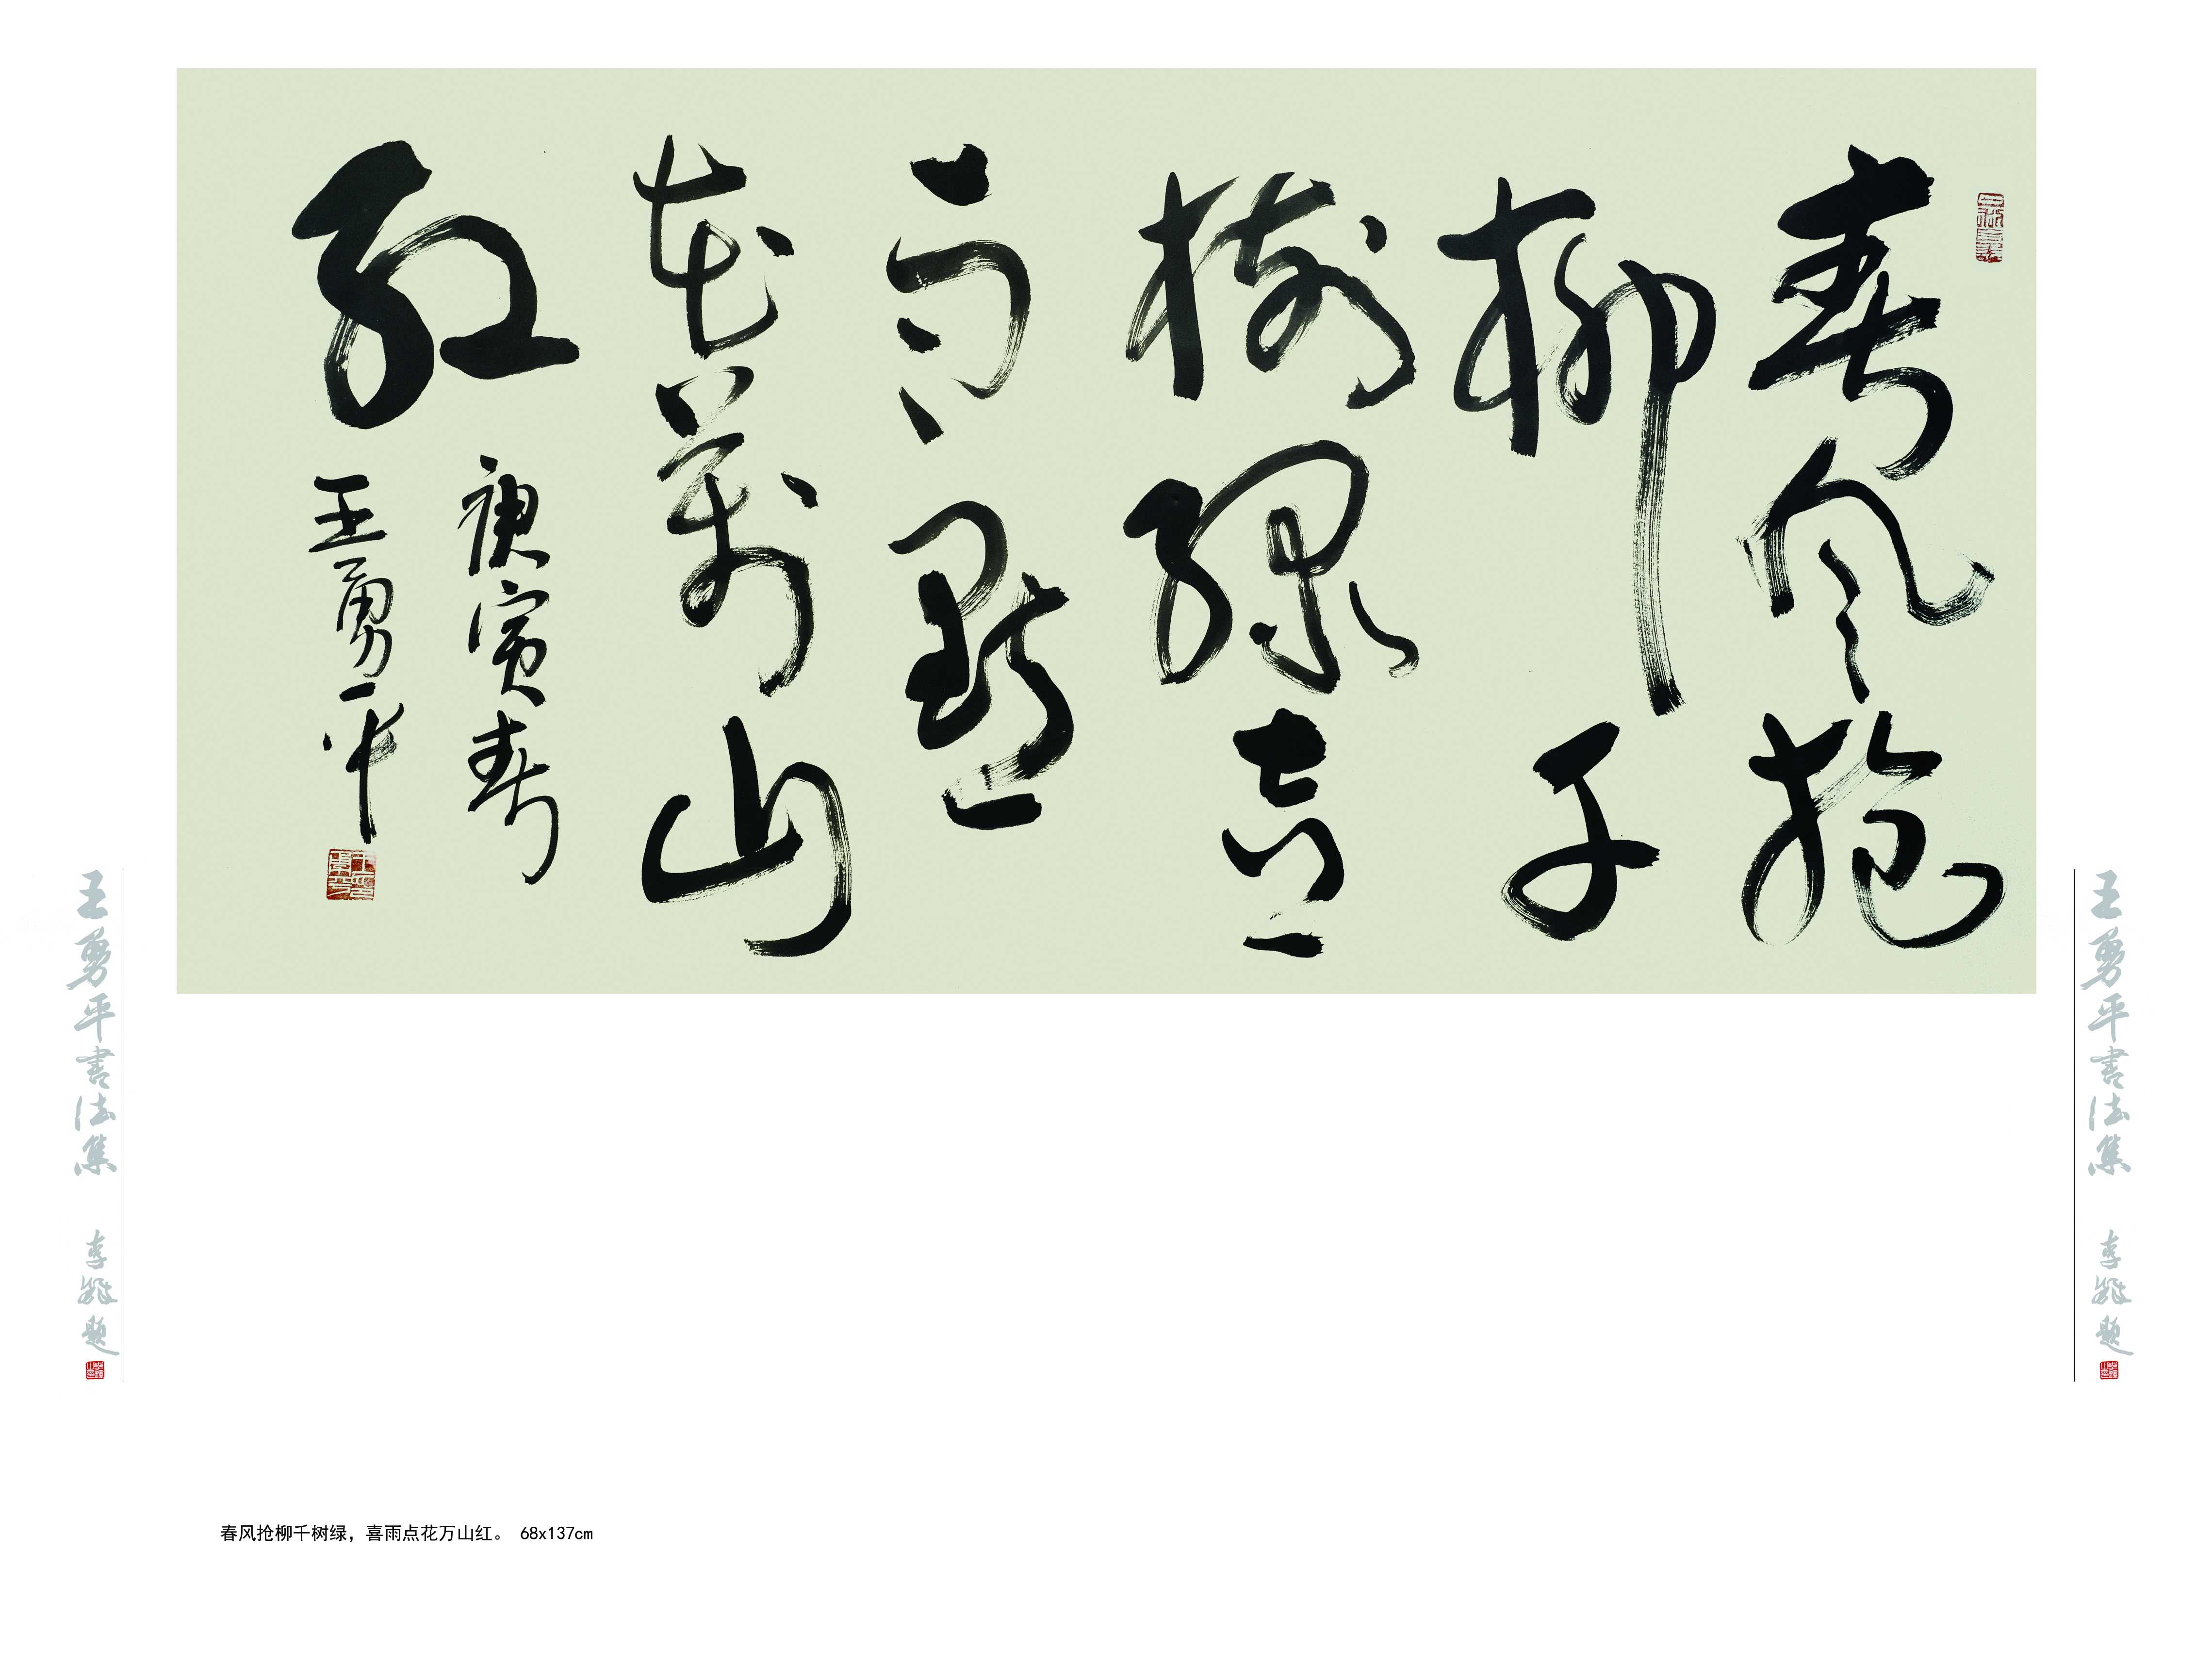 春风抢
柳千
树绿喜
雨点
花万山
红
庚寅春
王勇平
王勇平書法集
李鐸題
王勇平書法集
李鐸題
春风抢柳千树绿，喜雨点花万山红。 68x137cm